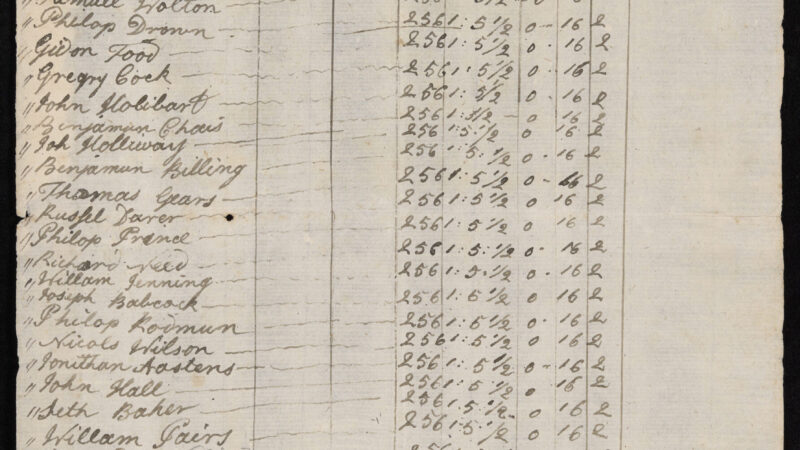 " Samuell Wolton 256 1: 5 1/2 0 16 2
" Philop Drown 256 1: 5 1/2 0 - 16 2
" Gidon Food 256 1: 5 1/2 0 - 16 2
" Gregry Cock 256 1: 5 1/2 0 - 16 2
" John Holibart 256 1: 5/2 0 - 16 2
" Benjamun Chais 256 1: 5/2 - 0 16 2
" Joh Holliway 256 1: 5 1/2 0 - 16 2
" Benjamun Billing 256 1: 5: 1/2 0 - 16 2
" Thomas Gears 256 1: 5 1/2 0 - 16 2
" Russel Darer 256 1: 5 1/2 0 16 2
" Philop Prince 256 1: 5 1/2 0 16 2
" Richard Need 256 1: 5: 1/2 0 - 16 2
" Willam Jenning 256 1: 5 1/2 0 - 16 2
" Joseph Babcock 256 1: 5 1/2 0 16 2
" Philop Rodmun 256 1: 5 1/2 0 - 16 2
" Nicols Wilson 256 1: 5 1/2 0 16 2
" Jonithan Astens 256 1: 5 1/2 0 - 16 2
" John Hall 256 1: 5 1/2 0 16 2
" Seth Baker 256 1: 5 1/2 0 16 2
" Willam Pairs 256 1: 5 1/2 0 16 2